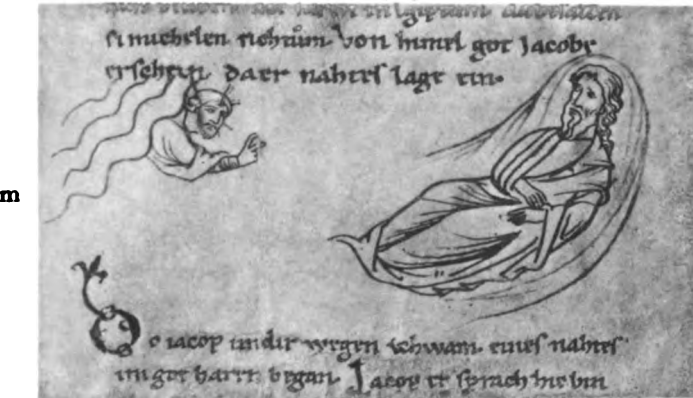 in Egiptum
si michelen richtům. Von himel got Jacobe
erschein. da er nahtes lage ein.
m
Do iacop undir wegen eines nahtes
im got haren began. Jacop er sprach hie bin